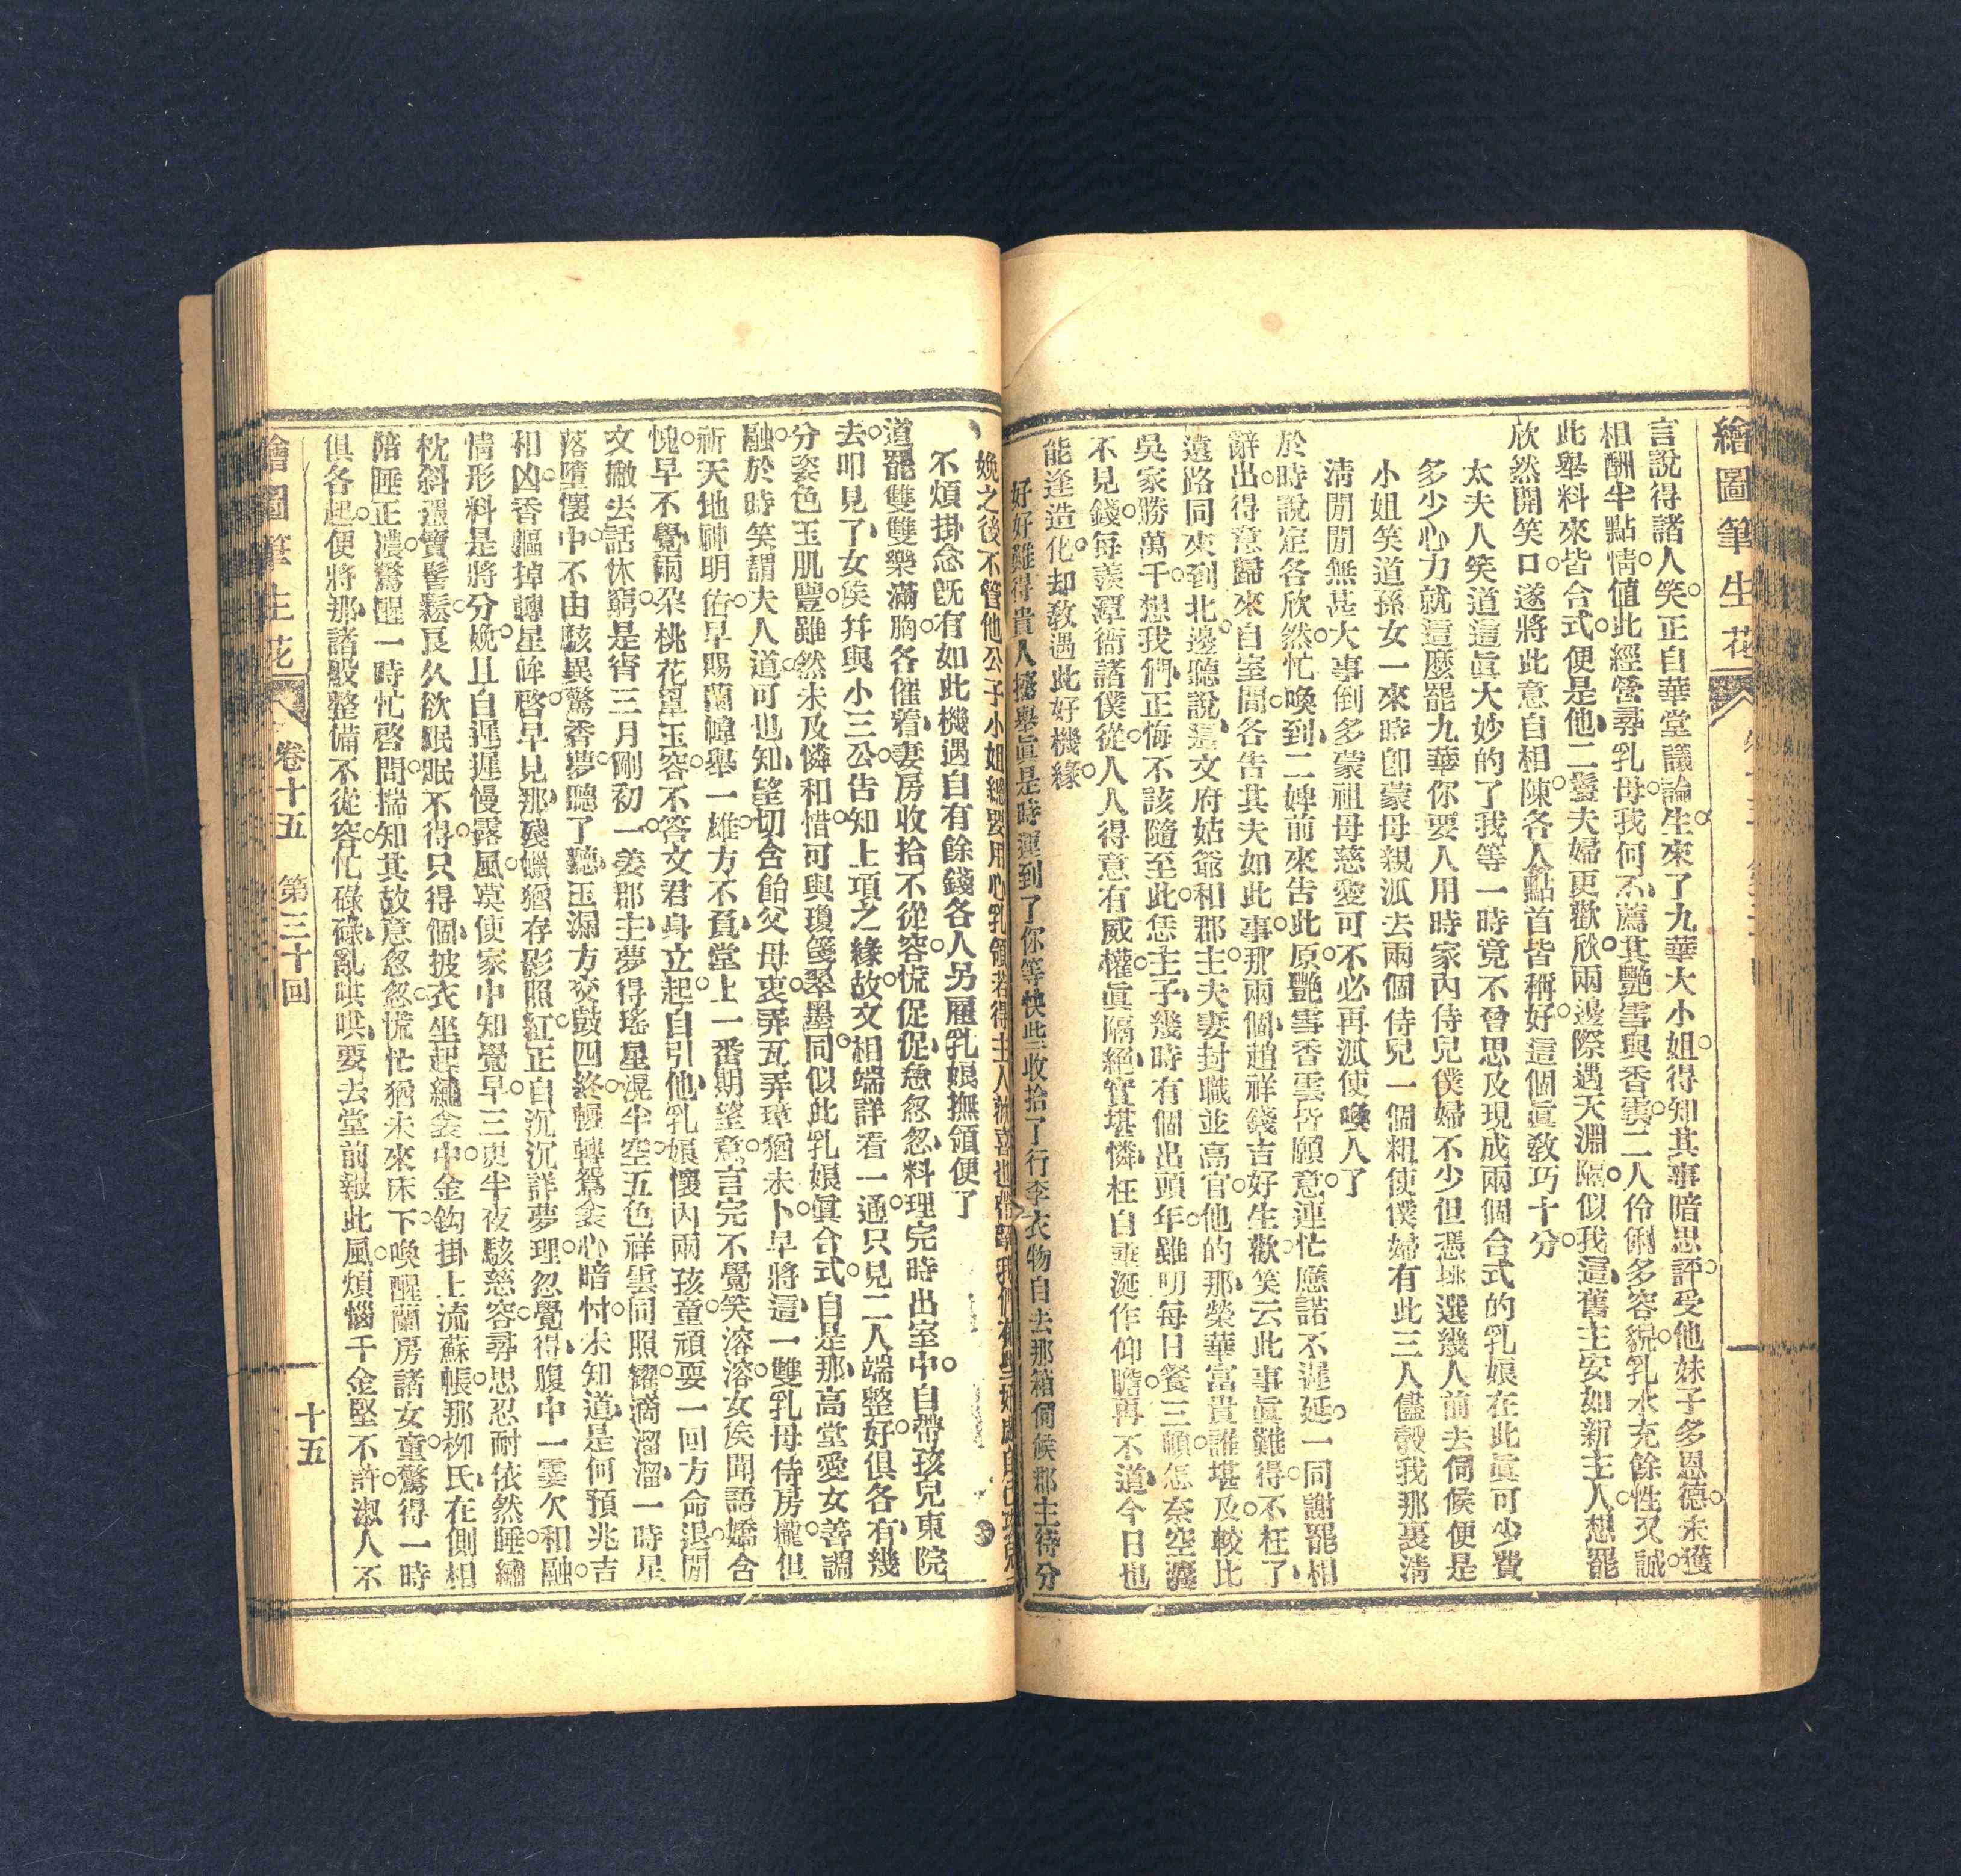 繪圖筆生花
言說得諸人笑。正自華堂議論生。來了九華大小姐。得知其事暗思評。受他妹子多恩德。未獲
相酬半點情。值此經營尋乳母。我何不薦其艷雪與香雲。二人伶俐多容貌。乳水充餘性又誠。
此舉料來皆合式。便是他二鬟夫婦更歡欣。兩邊際遇天淵隔。似我這舊主安如新主人。想罷
欣然開笑口。遂將此意自相陳。各人點首皆稱好。這個眞教巧十分。
太夫人笑道這眞大妙的了我等一時竟不曾思及現成兩個合式的乳娘在此眞可少費
多少心力就這麼罷九華你要人用時家內侍兒僕婦不少但憑挑選幾人前去伺候便是
小姐笑道孫女一來時卽蒙母親派去兩個侍兒一個粗使僕婦有此三人儘彀我那裏清
清閒閒無甚大事倒多蒙祖母慈愛可不必再派使喚人了
於時說定各欣然。忙喚到二婢前來告此原。艷雪香雲皆願意。連忙應諾不遲延。一同謝罷相
辭出。得意歸來自室間。各告其夫如此事。那兩個趙祥錢吉好生歡。笑云此事眞難得。不枉了
遠路同來到北邊。聽說這文府姑爺和郡主。夫妻封職並高官。他的那榮華富貴誰堪及。較比
吳家勝萬千。想我們正悔不該隨至此。恁主子幾時有個出頭年。雖明每日餐三頓。怎奈空囊
不見錢。每羨潭衙諸僕從。人人得意有威權。眞隔絕實堪憐。枉自垂涎作仰瞻。再不道今日也
能逢造化。却教遇此好機緣。
好好難得貴人擡舉眞是時運到了你等快些收拾了行李衣物自去那箱伺候郡主待分
娩之後不管他公子小姐總要用心乳領若得主人歡喜也帶
不煩掛念旣有如此機遇自有餘錢各人另雇乳娘撫領便了
道罷雙雙樂滿胸。各催着妻房收拾不從容。慌促促急忽忽。料理完時出室中。自帶孩兒東院
去。叩見了女侯幷與小三公。告知上項之緣故。文相端詳看一通。只見二人端整好。俱各有幾
分姿色玉肌豐。雖然未及憐和惜。可與瓊箋翠墨同。似此乳娘眞合式。自是那高堂愛女善調
融。於時笑謂夫人道。可也知望切含飴父母衷。弄瓦弄璋猶未卜。早將這一雙乳母侍房櫳。但
祈天地神明佑。早賜蘭幃舉一雄。方不負堂上一番期望意。言完不覺笑溶溶。女侯聞語嬌含
愧。早不覺兩朶桃花罩玉容。不答文君身立起。自引他乳娘懷內兩孩童。頑耍一回方命退。閒
文撇去話休窮。是宵三月剛初一。姜郡主夢得瑤星滉半空。五色祥雲同照耀。滴溜溜一時星
落墮懷中。不由駭異驚香夢。聽了聽玉漏方交鼓四終。輾轉鴛衾心暗忖。未知道是何預兆吉
和凶。香軀掉轉星眸啓。早見那殘蠟猶存影照紅。正自沉沉詳夢理。忽覺得腹中一霎欠和融。
情形料是將分娩。且自遲遲慢露風。莫使家中知覺早。三更半夜駭慈容。尋思忍耐依然睡。繡
枕斜遞寶髻鬆。良久欲眠眠不得。只得個披衣坐起繡衾中。金鈎掛上流蘇帳。那柳氏在側相
陪睡正濃。驚醒一時忙啓問。揣知其故意忽忽。慌忙猶未來床下。喚醒蘭房諸女童。驚得一時
俱各起。便將那諸般整備不從容。忙碌碌亂哄哄。要去堂前報此風。煩惱千金堅不許。淑人不
繪圖筆生花
卷十五
第三十回
十五